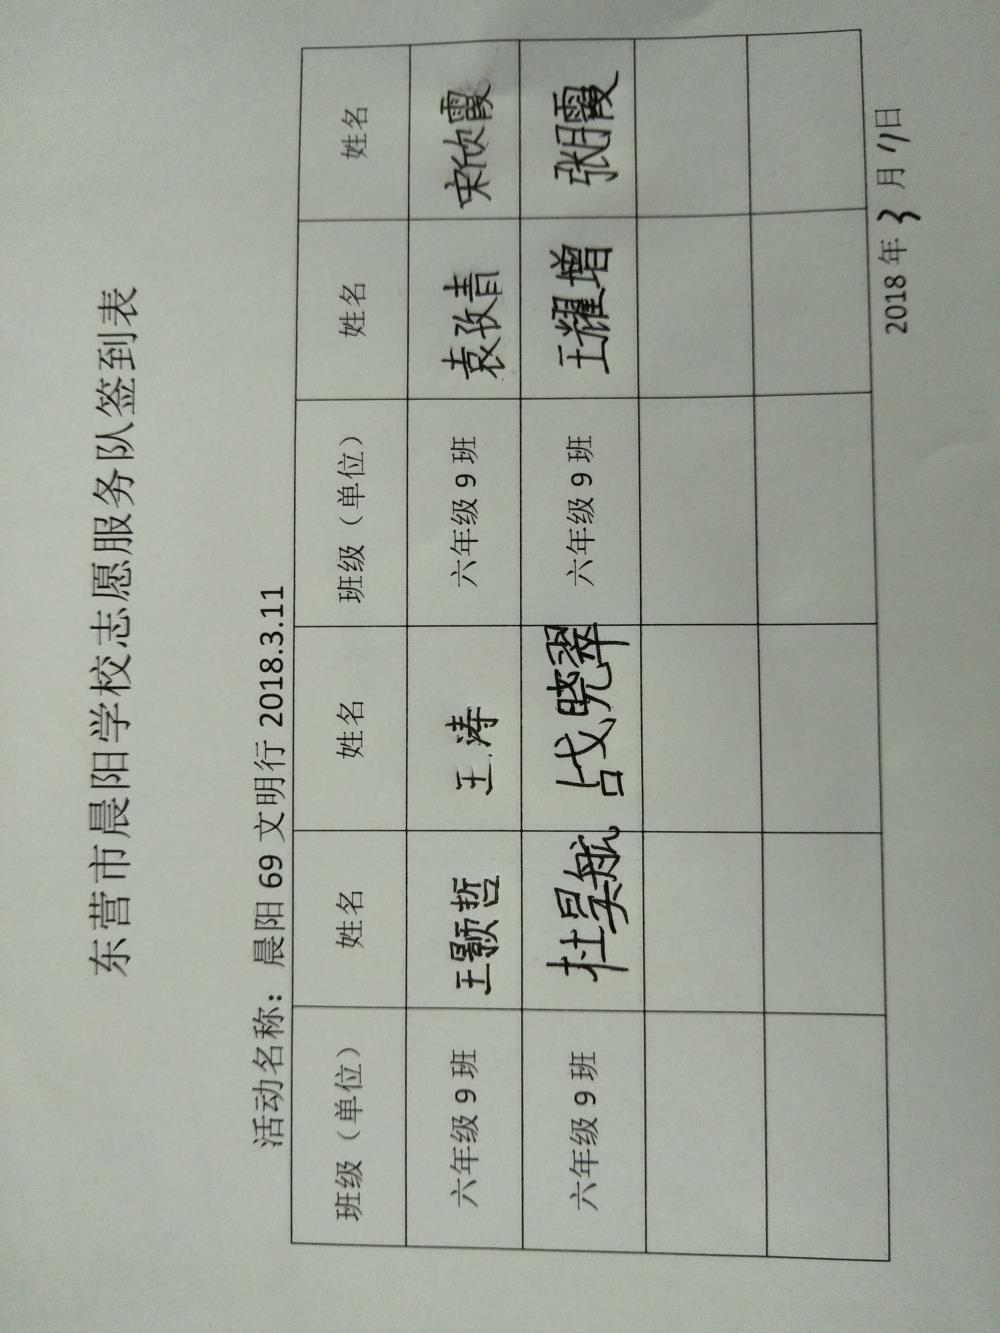 东营市晨阳学校志愿服务队签到表
活动名称：晨阳 69 文明行 2018.3.11
班级（单位） 姓名 姓名 班级（单位） 姓名 姓名
六年级 9 班 王颢哲 王涛 六年级 9 班 袁孜青 宋欣霞
六年级 9 班 杜昊航 战晓翠 六年级 9 班 王耀增 张月霞
2018 年 3 月 11 日